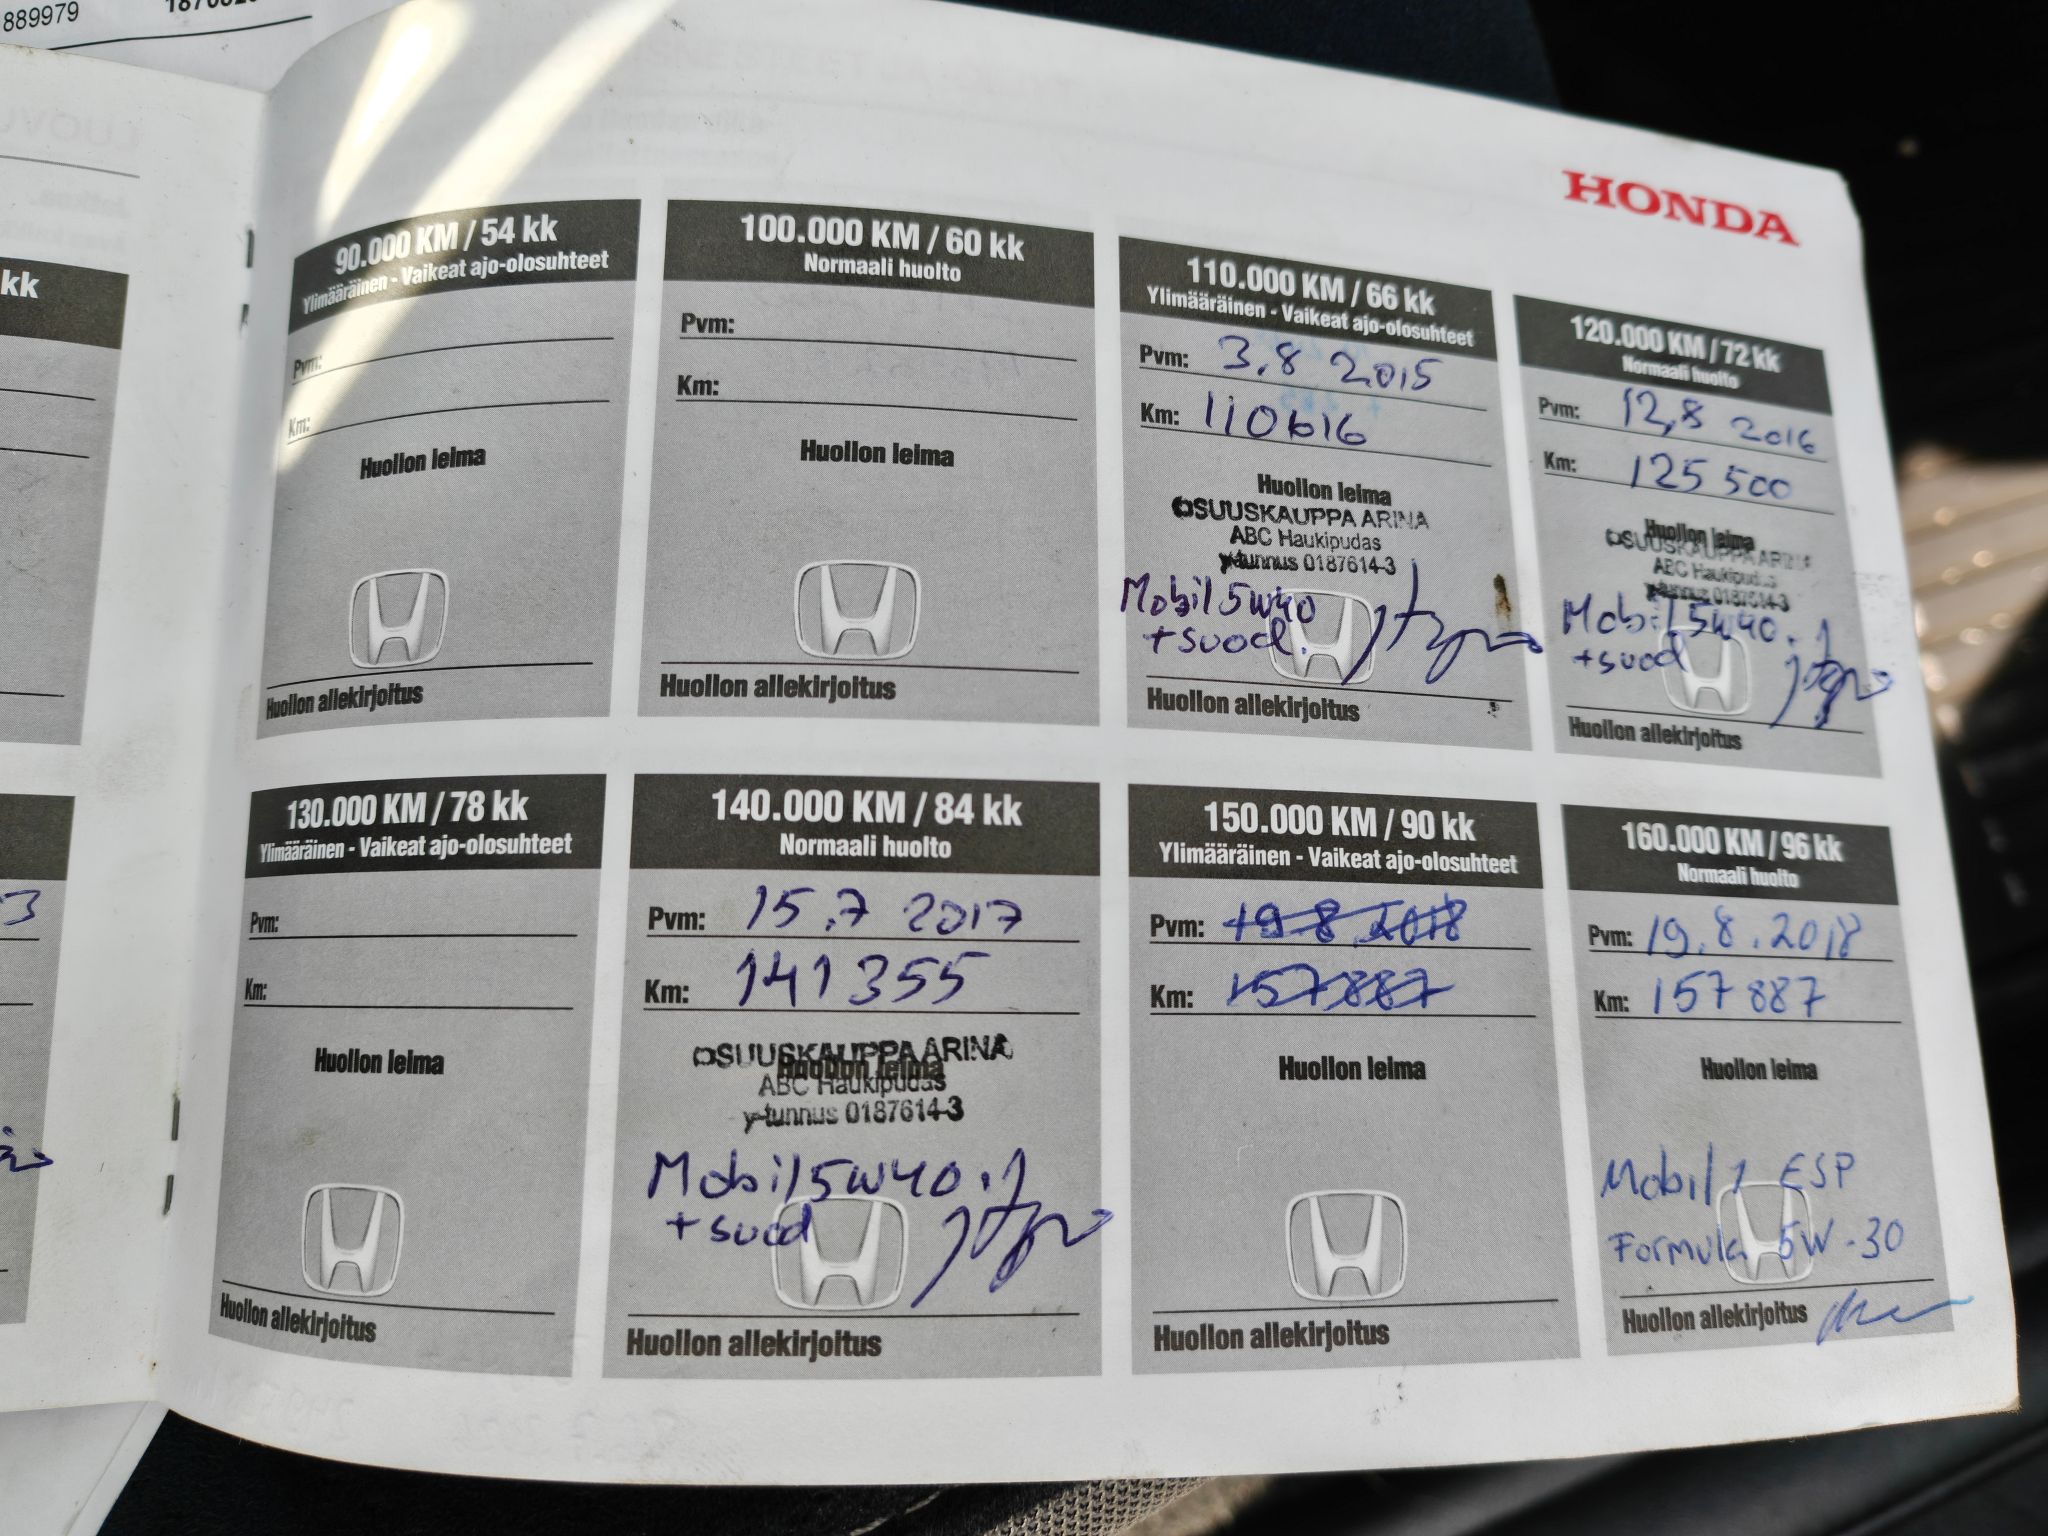 889979
HONDA
kk
3
90.000 KM / 54 kk
Ylimääräinen - Vaikeat ajo-olosuhteet
Pvm:
Km:
Huollon leima
Huollon allekirjoitus
100.000 KM / 60 kk
Normaali huolto
Pvm:
Km:
Huollon leima
Huollon allekirjoitus
110.000 KM / 66 kk
Ylimääräinen - Vaikeat ajo-olosuhteet
Pvm: 3.8 2015
Km: 110616
Huollon leima
OSUUSKAUPPA ARINA
ABC Haukipudas
y-tunnus 0187614-3
Mobil 5w40
+suod.
Huollon allekirjoitus
120.000 KM / 72 kk
Normaali huolto
Pvm: 12.8 2016
Km: 125 500
Huollon leima
OSUUSKAUPPA ARINA
ABC Haukipudas
y-tunnus 0187614-3
Mobil 5w40.
+suod
Huollon allekirjoitus
130.000 KM / 78 kk
Ylimääräinen - Vaikeat ajo-olosuhteet
Pvm:
Km:
Huollon leima
Huollon allekirjoitus
140.000 KM / 84 kk
Normaali huolto
Pvm: 15.7 2017
Km: 141 355
Huollon leima
OSUUSKAUPPA ARINA
ABC Haukipudas
y-tunnus 0187614-3
Mobil 5w40.
+suod
Huollon allekirjoitus
150.000 KM / 90 kk
Ylimääräinen - Vaikeat ajo-olosuhteet
Pvm: 19.8.2018
Km: 157887
Huollon leima
Huollon allekirjoitus
160.000 KM / 96 kk
Normaali huolto
Pvm: 19.8.2018
Km: 157 887
Huollon leima
Mobil 1 ESP
Formula 5W-30
Huollon allekirjoitus